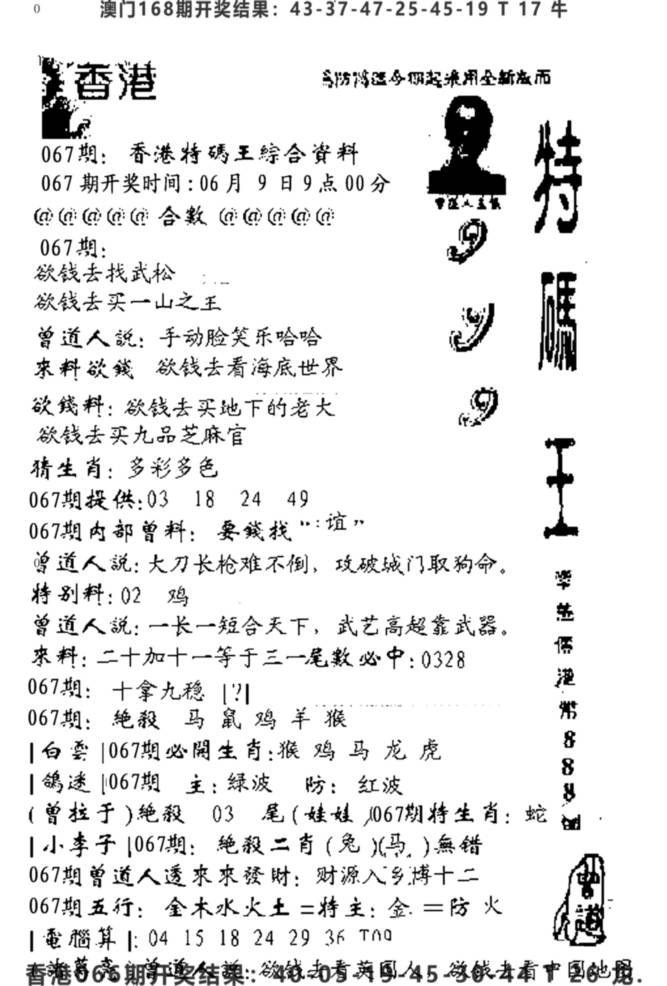 澳门168期开奖结果：43-37-47-25-45-19 T 17 牛
香港
067期：香港特碼王綜合資料
067期开奖时间:06月 9 日9点00分
@@@@@ 合數 @@@@@
067期:
欲钱去找武松
欲钱去买一山之王
曾道人説：手动脸笑乐哈哈
來料欲錢 欲钱去看海底世界
欲錢料：欲钱去买地下的老大
欲钱去买九品芝麻官
猜生肖：多彩多色
067期提供:03 18 24 49
067期内部曾料：要錢找“：谊”
曾道人説:大刀长枪难不倒，攻破城门取狗命。
特别料:02 鸡
曾道人説:一长一短合天下，武艺高超靠武器。
來料:二十加十一等于三一尾數必中:0328
067期：十拿九稳 |?|
067期：絶殺 马 鼠 鸡 羊 猴
|白雲|067期必開生肖:猴 鸡 马 龙 虎
|鴿迷|067期 主:緑波 防：红波
(曾拉于)絶殺 03 尾(娃娃)067期特生肖：蛇
|小李子|067期：绝殺二肖(兔)(马)無错
067期曾道人透來來發財：财源入乡博十二
067期五行：金木水火土=特主：金.=防 火
|電腦算|:04 15 18 24 29 36 T09
香港066期开奖结果：40-05-19-45-30-44 T 26 龙.
特
碼
王
9
9
9
港
幣
8
8
8